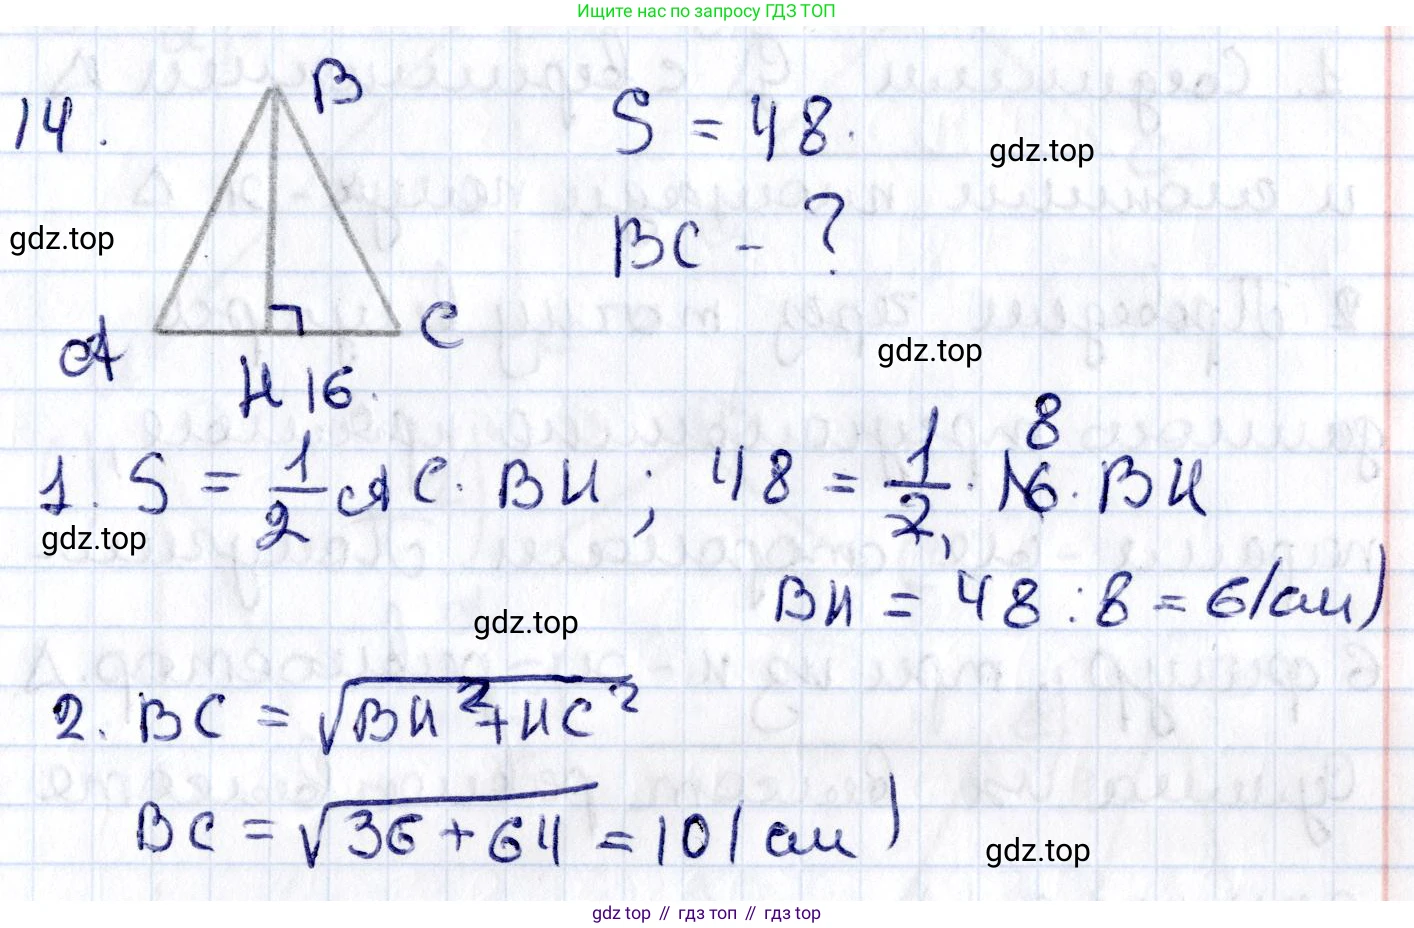 Ищите нас по запросу ГДЗ ТОП
14.
B
S = 48.
gdz.top
BC - ?
gdz.top
A
C
gdz.top
H 16.
8
1. S = 1/2 AC · BH ; 48 = 1/2 · 16 · BH
gdz.top
BH = 48 : 8 = 6 (см)
gdz.top
2. BC = √BH² + HC²
BC = √36 + 64 = 10 (см)
gdz.top
gdz top // гдз топ // gdz top